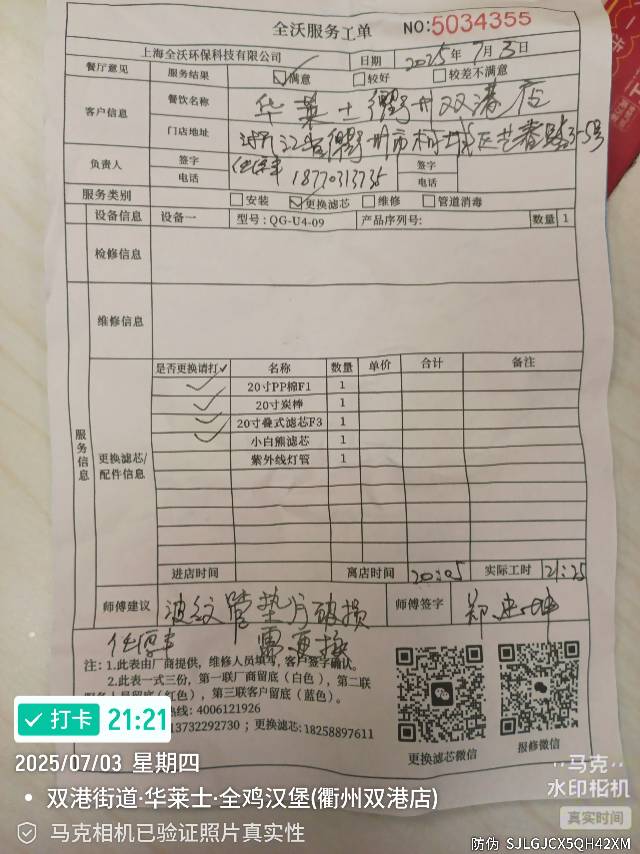 全沃服务工单 NO:5034355
上海全沃环保科技有限公司 日期 2025年7月3日
餐厅意见 服务结果 ☑满意 □较好 □较差不满意
客户信息 餐饮名称 华莱士衢州双港店
门店地址 浙江省衢州市柯城区
负责人 签字 签字
电话 18770313735 电话
服务类别 □安装 ☑更换滤芯 □维修 □管道消毒
设备信息 设备一 型号:QG-U4-09 产品序列号: 数量 1
检修信息
维修信息
服务信息
更换滤芯/配件信息
是否更换请打✓ 名称 数量 单价 合计 备注
✓ 20寸PP棉F1 1
✓ 20寸炭棒 1
✓ 20寸叠式滤芯F3 1
✓ 小白熊滤芯 1
紫外线灯管 1
进店时间 离店时间 20:05 实际工时 21:25
师傅建议 波纹管垫片破损 师傅签字 郑
需更换
注:1.此表由厂商提供,维修人员填写,客户签字确认。
2.此表一式三份,第一联厂商留底(白色),第二联
服务人员留底(红色),第三联客户留底(蓝色)。
热线:4006121926
13732292730;更换滤芯:18258897611
更换滤芯微信 报修微信
打卡 21:21
2025/07/03 星期四
双港街道·华莱士·全鸡汉堡(衢州双港店)
马克相机已验证照片真实性
马克
水印相机
真实时间
防伪 SJLGJCX5QH42XM